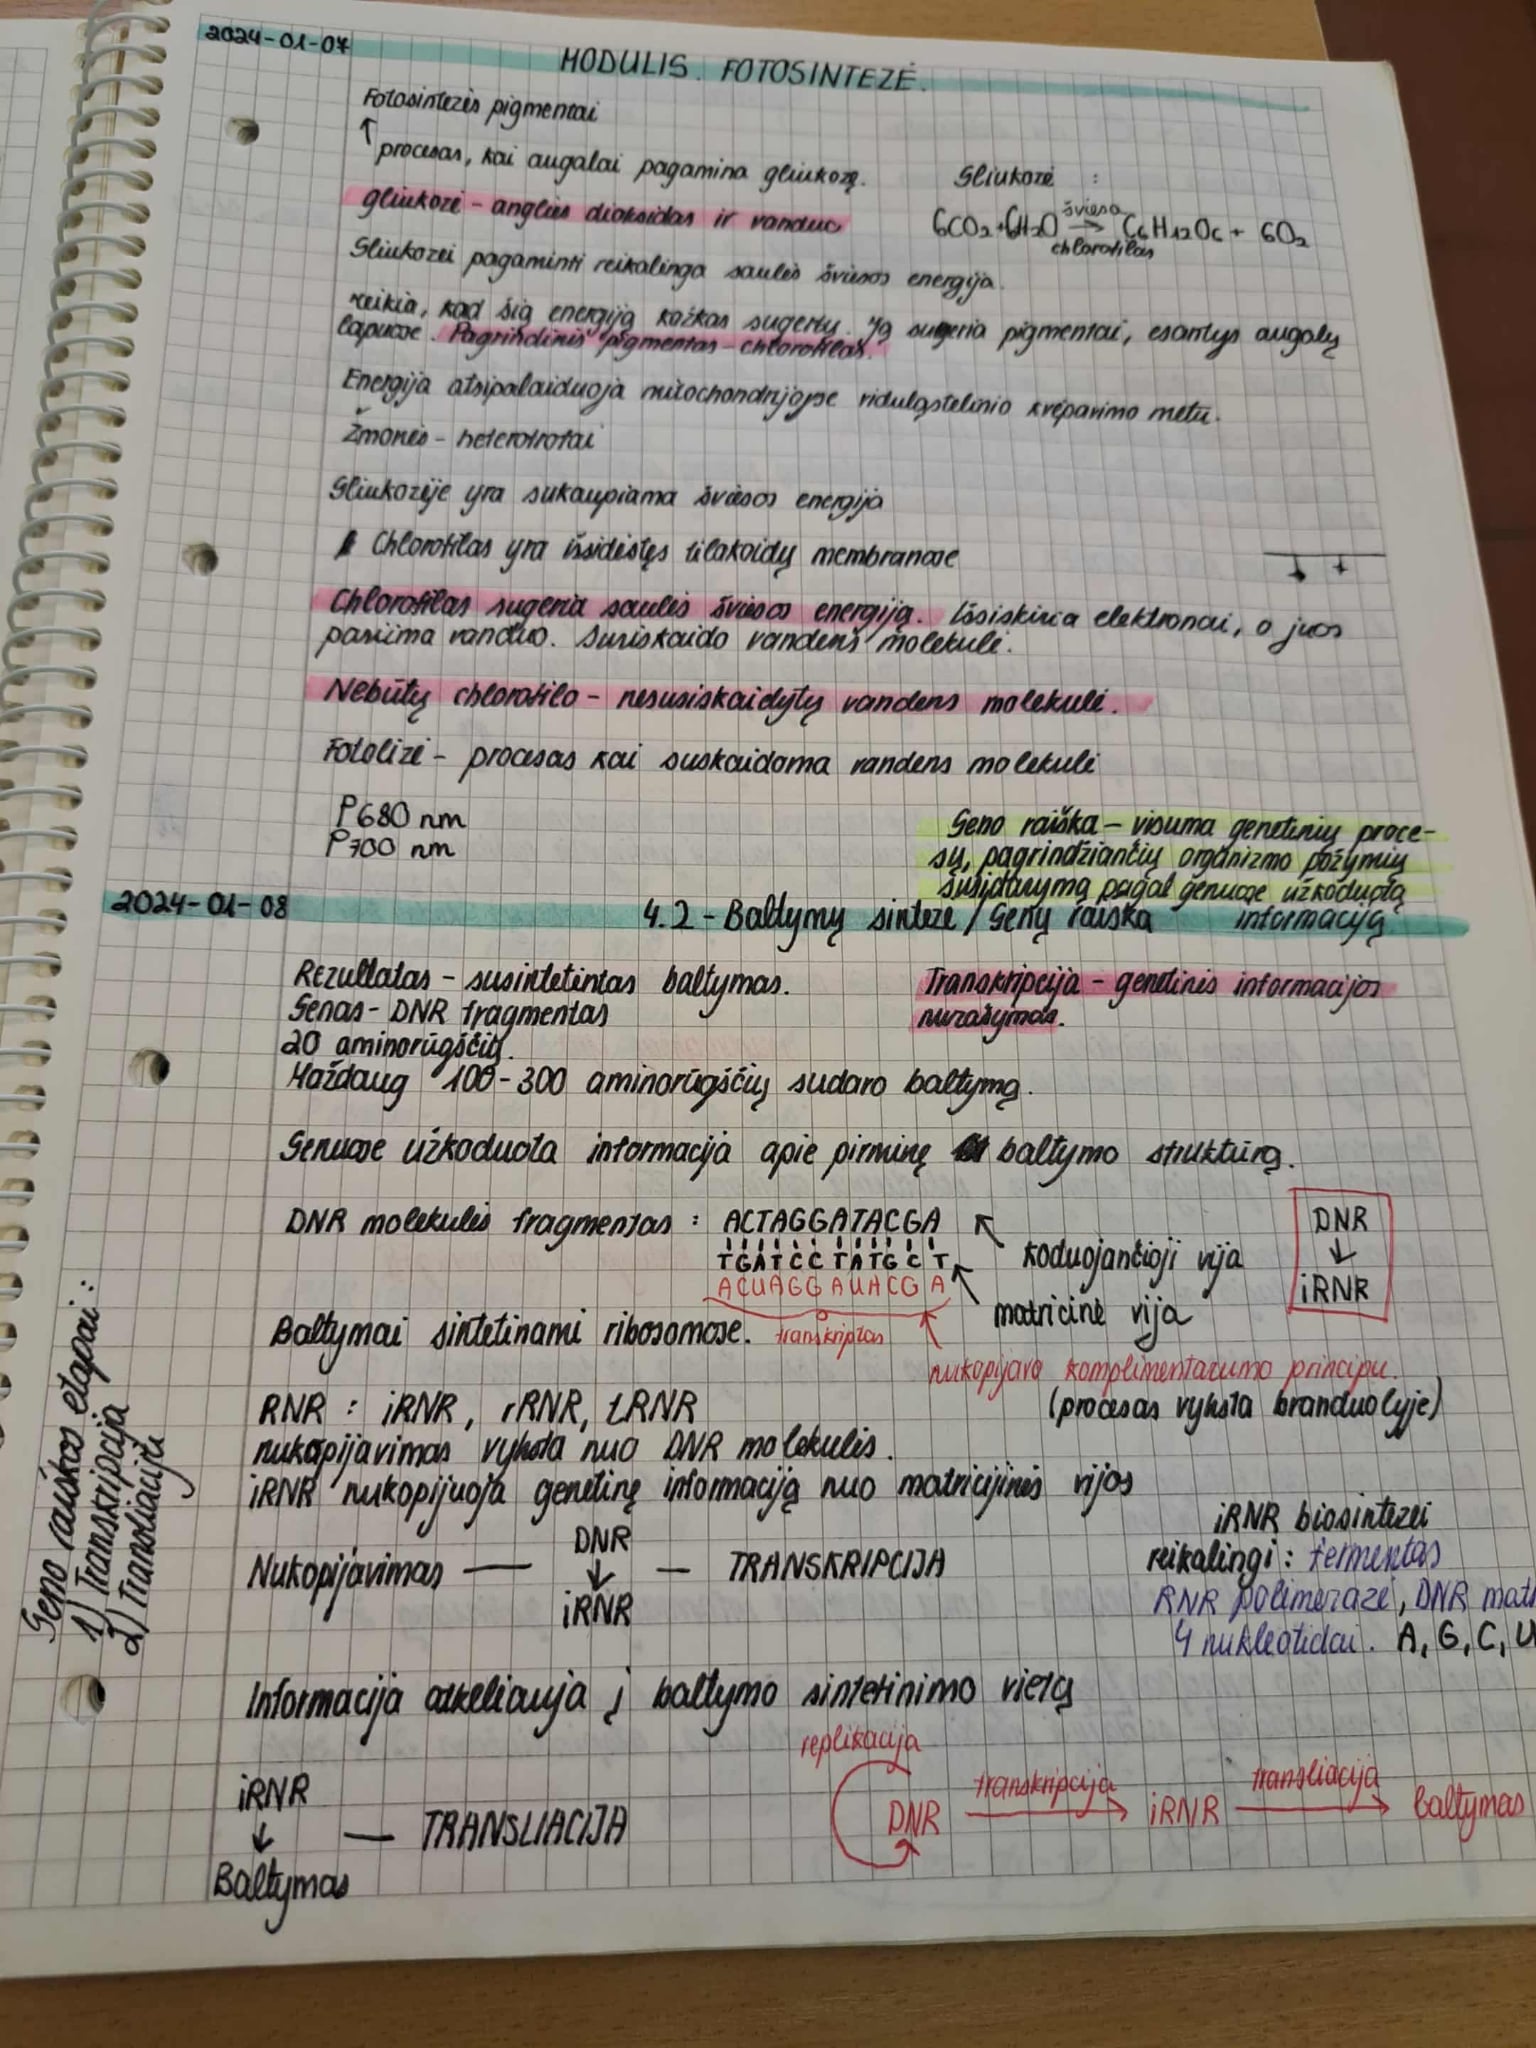 2024-01-07
MODULIS. FOTOSINTEZĖ.
Fotosintezės pigmentai
↑ procesas, kai augalai pagamina gliukozę.
gliukozė - anglies dioksidas ir vanduo
Gliukozė :
6CO2+6H2O šviesa → chlorofilas C6H12O6 + 6O2
Gliukozei pagaminti reikalinga saulės šviesos energija.
reikia, kad šią energiją kažkas sugertų. Ją sugeria pigmentai, esantys augalų
lapuose. Pagrindinis pigmentas - chlorofilas.
Energija atsipalaiduoja mitochondrijose viduląstelinio kvėpavimo metu.
Žmonės - heterotrofai
Gliukozėje yra sukaupiama šviesos energija
Chlorofilas yra išsidėstęs tilakoidų membranose
Chlorofilas sugeria saulės šviesos energiją. Išsiskiria elektronai, o juos
pasiima vanduo. Susiskaido vandens molekulė.
Nebūtų chlorofilo - nesusiskaidytų vandens molekulė.
Fotolizė - procesas kai suskaidoma vandens molekulė
P680 nm
P700 nm
Geno raiška - visuma genetinių proce-
sų, pagrindžiančių organizmo požymių
susidarymą pagal genuose užkoduotą
informaciją
2024-01-08
4.2 - Baltymų sintezė / Genų raiška
Rezultatas - susintetintas baltymas.
Genas - DNR fragmentas
20 aminorūgščių.
Maždaug 100-300 aminorūgščių sudaro baltymą.
Transkripcija - genetinės informacijos
nurašymas.
Genuose užkoduota informacija apie pirminę baltymo struktūrą.
DNR molekulės fragmentas : ACTAGGATACGA ↖ koduojančioji vija
TGATCCTATGCT ↖ matricinė vija
ACUAGGAUACGA
transkriptas
nukopijavo komplimentarumo principu.
(procesas vyksta branduolyje)
DNR
↓
iRNR
Baltymai sintetinami ribosomose.
RNR : iRNR, rRNR, tRNR
nukopijavimas vyksta nuo DNR molekulės.
iRNR nukopijuoja genetinę informaciją nuo matricijinės vijos
Geno raiškos etapai :
1) Transkripcija
2) Transliacija
Nukopijavimas — DNR ↓ iRNR — TRANSKRIPCIJA
iRNR biosintezei
reikalingi : fermentas
RNR polimerazė, DNR
4 nukleotidai. A, G, C, U
Informacija atkeliauja į baltymo sintetinimo vietą
iRNR
↓
Baltymas
— TRANSLIACIJA
replikacija
DNR transkripcija → iRNR transliacija → baltymas